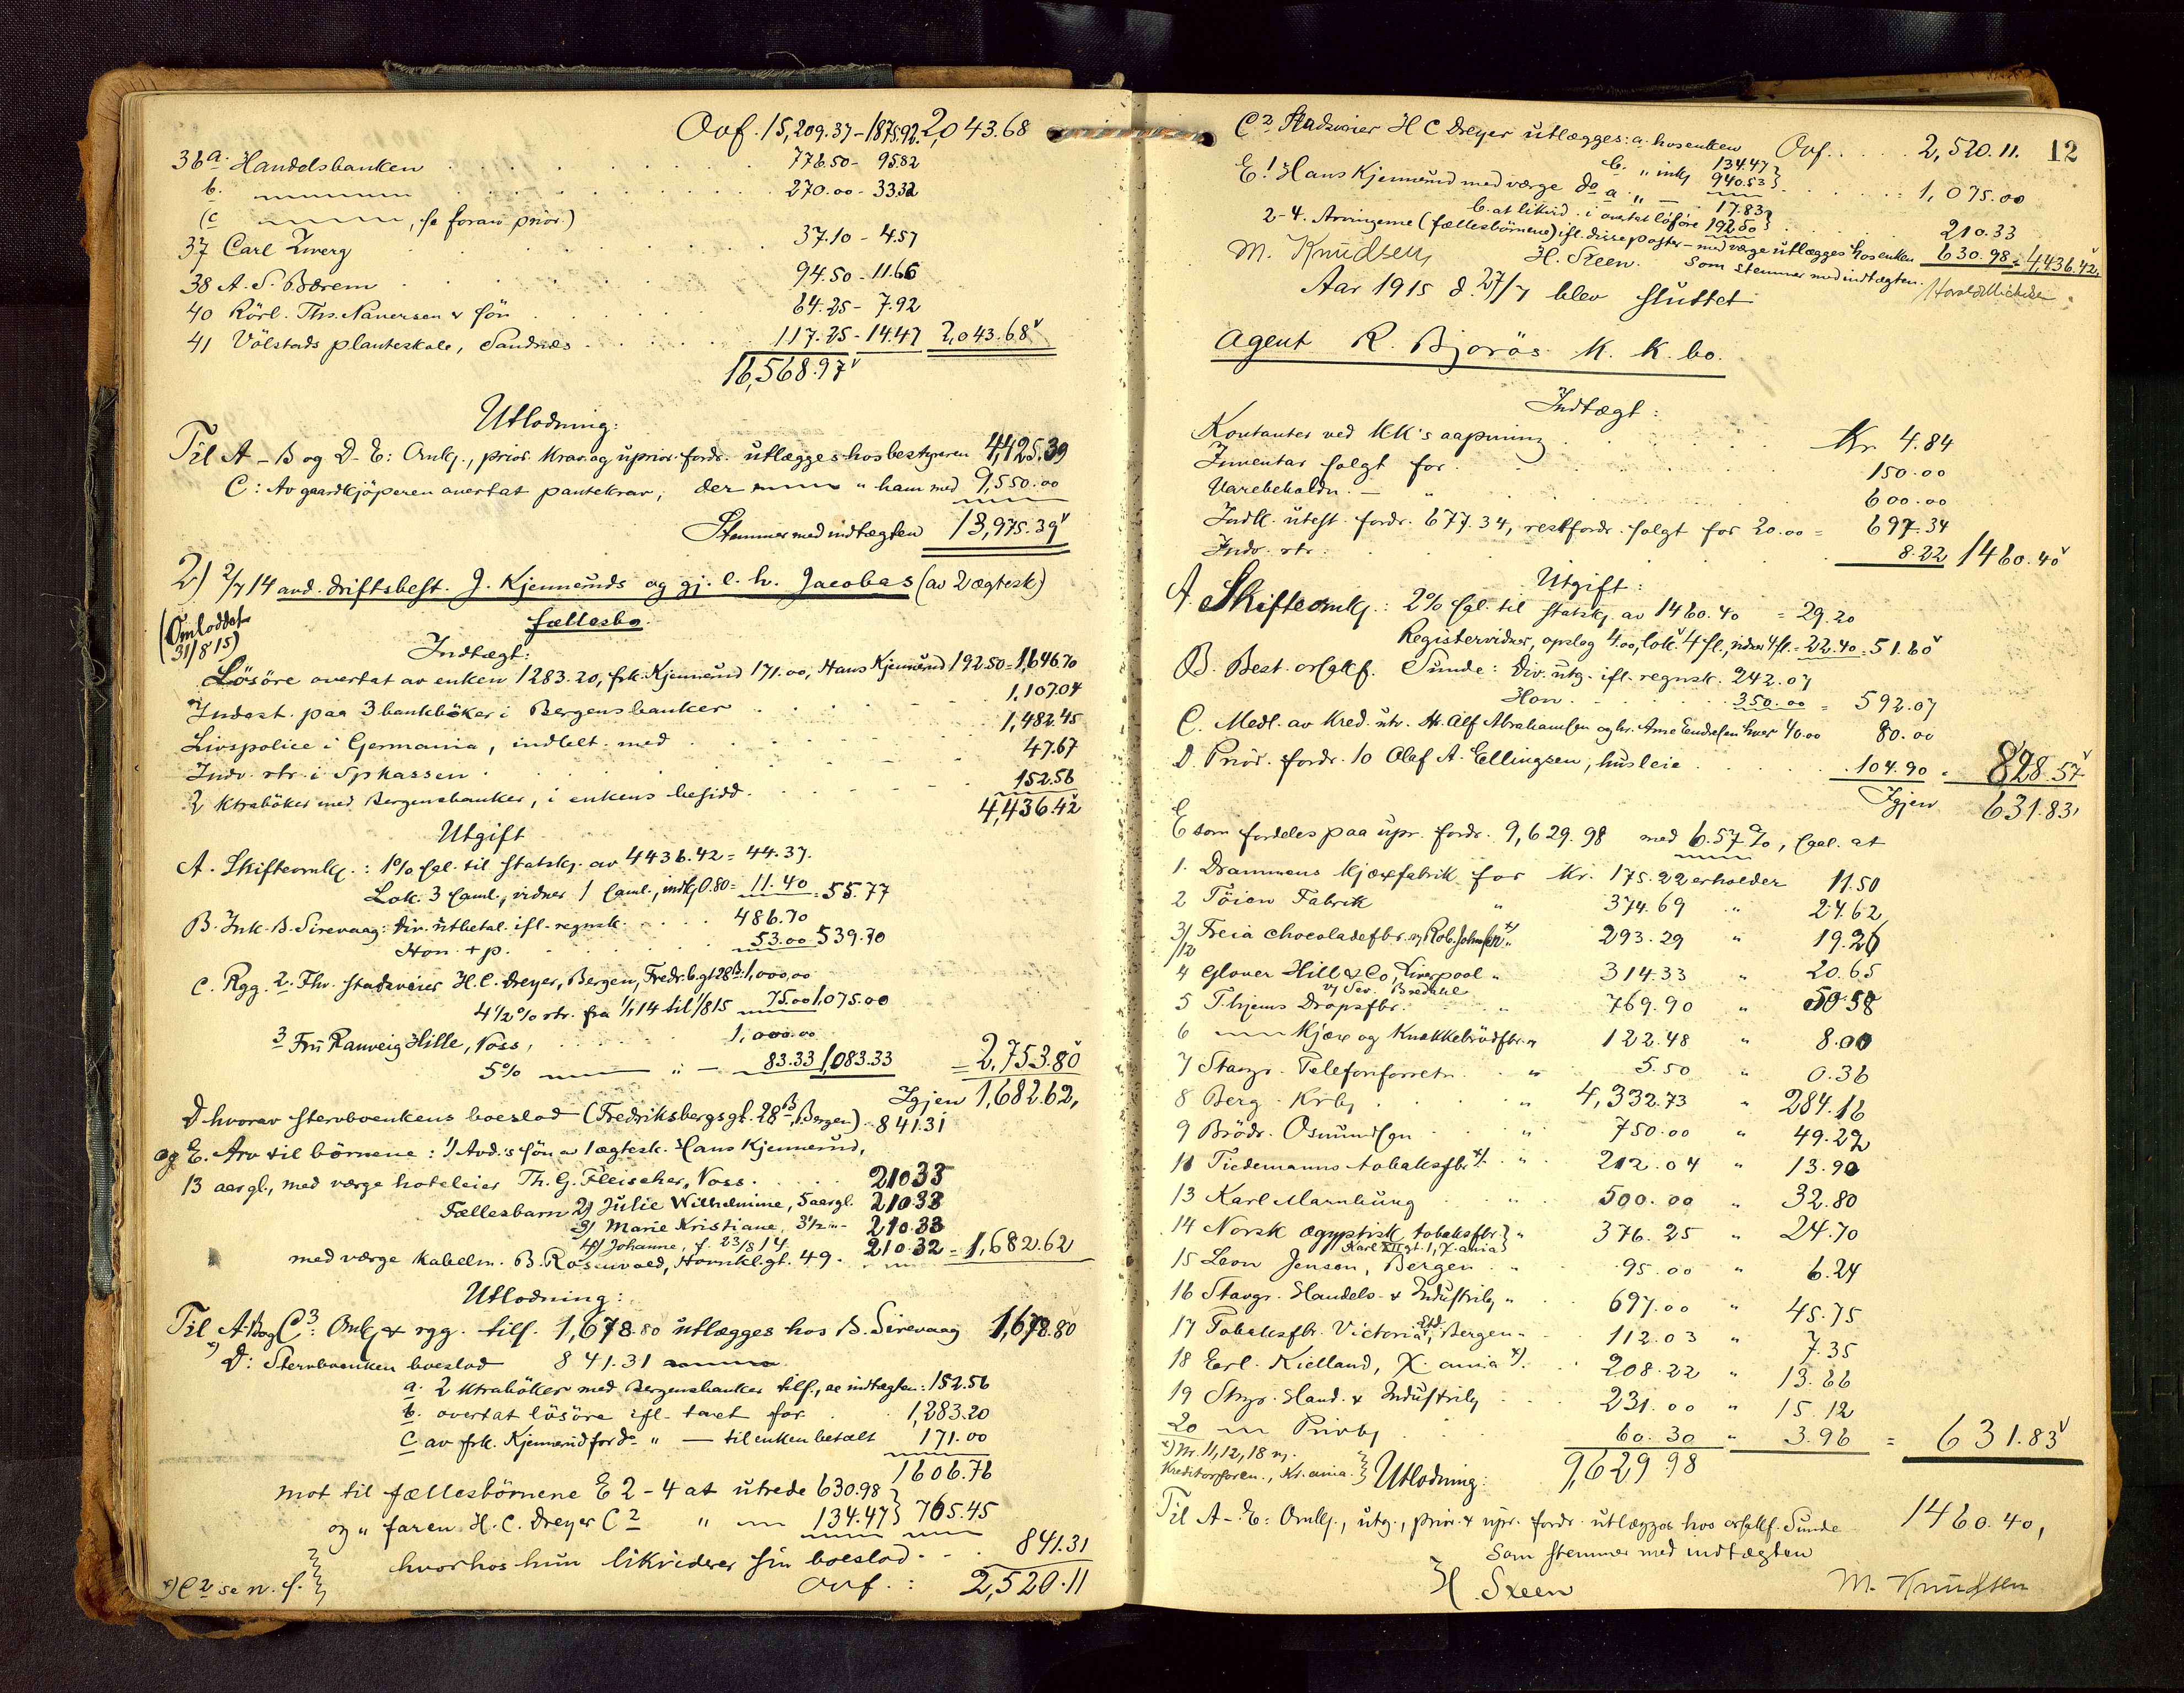 Ovf. 15,209.37 - 1875.92. 2,043.68
36 a. Handelsbanken . . . 776.50 - 95.82
b. 〃 . . . 270.00 - 33.32
(c 〃, se foran prior.)
37 Carl Zwerg . . . 37.10 - 4.57
38 A. S. Bærem . . . 94.50 - 11.66
40 Rörl. Ths. Naversen & sön . . . 64.25 - 7.92
41 Völstads planteskole, Sandnæs . . . 117.25 - 14.47 2,043.68
16,568.97
Utlodning:
Til A - B og D - E: Omk., prior. krav og uprior. fordr. utlægges hos bestyreren 4,425.39
C: Av gaardkjöperen overtat pantekrav, der 〃 〃 ham med 9,550.00
Stemmer med indtægten 13,975.39
2) 2/7 14 avd. driftsbest. J. Kjennerüds og gj. l. h. Jacobas (av 2 ægtesk)
fællesbo.
(Omloddet
31/8 15)
Indtægt:
Lösöre overtat av enken 1283.20, frk. Kjennerüd 171.00, Hans Kjennerüd 192.50 = 1,646.70
Indest. paa 3 bankböker i Bergensbanker . . . 1,107.04
Livspolice i Germania, indlöst med . . . 1,482.45
Indv. rtr. i Spkassen . . . 47.67
2 ktraböker med Bergensbanker, i enkens besidd. . . . 152.56
4,436.42
Utgift
A. Skifteomk.: 1% sgl. til statsk. av 4436.42 = 44.37.
Lok. 3 saml., vidner 1 saml., indk 0.80 = 11.40 = 55.77
B. Ink. B. Sirevaag: Div. utbetal. ifl. regnsk. . . . 486.70
Hon. + p. . . . 53.00 539.70
C. Rgg. 2. Fhv. stadsveier H. C. Dreyer, Bergen, Fredr.b.gt 28 B: 1,000,00
4 1/2 % rtr. fra 1/1 14 til 1/8 15 75.00 1,075.00
3 Frü Ranveig Hille, Voss, . . . 1,000.00
5% 〃 〃 - 83.33 1,083.33 = 2,753.80
Igjen 1,682.62,
D hvorav stervboenkens boeslod (Fredriksbergsgt. 28 B, Bergen). 841.31
og E. Arv til börnene: 1) Avd.s sön av 1 ægtesk. Hans Kjennerüd,
13 aar gl., med værge hoteleier Th. G. Fleischer, Voss . . . 210.33
Fællesbarn 2) Julie Wilhelmine, 5 aar gl. 210.33
3) Marie Kristiane, 3 1/2 〃 - 210.33
4) Johanne, f. 23/8 14. 210.32 = 1,682.62
med værge kabelm. B. Rosenvold, Hornkl.gt. 49.
Utlodning:
Til A. B og C 3: Omk. & rgg. tils. 1,678.80 utlægges hos B. Sirevaag 1,678.80
*) D: Stervboenken boeslod 841.31
a. 2 ktraböker med Bergensbanker tils., se indtægten: 152.56
b. overtat lösöre ifl. taxt for . 1,283.20
c av frk. Kjennerüd for do 〃 — til enken betalt 171.00
1606.76
mot til fællesbörnene E 2 - 4 at utrede 630.98
og 〃 faren H. C. Dreyer C 2 〃 〃 134.47 } 765.45
hvorhos hun likviderer sin boeslod . . . 841.31
*) C 2 se n. s. Ovf.: 2,520.11
12
C 2 Stadsveier H C Dreyer utlægges: a. hos enken 134.47 Ovf. . . . 2,520.11.
b. 〃 ink 940.53 } . . . = 1,075.00
E. 1 Hans Kjennerüd med værge do a 〃 — 17.83
b. at likvid. i overtat lösöre 192.50 } . . . 210.33
2-4. Arvingerne (fællesbörnene) ifl. disse poster - med værge utlægges hos enken 630.98 = 4,436.42,
M. Knudsen, H. Steen. Som stemmer med indtægten.
Aar 1915 d. 27/7 blev sluttet
Agent R. Bjorøs K. K. bo.
Indtægt:
Kontanter ved KK's aapning . . . Kr. 4.84
Inventar solgt for . . . 150.00
Varebeholdn. — 〃 . . . 600.00
Indk. utest. fordr. 677.34, restfordr. solgt for 20.00 = 697.34
Indv. rtr. . . . 8.22 1460.40
Utgift:
A. Skifteomk.: 2% sgl. til statsk. av 1460.40 = 29.20
Registervidner, opslag 4.00, lok. 4 sl., vidner 4 sl. = 22.40 = 51.60
B. Best. orsakf. Sunde: Div. utg. ifl. regnsk. 242.07
Hon. . . . 350.00 = 592.07
C. Medl. av kred. utv. Hr. Alf Abrahamsen og hr. Arne Endresen hver 40.00 80.00
D. Prior. fordr. 10 Olaf A. Ellingsen, husleie . . . 104.90 = 828.57
Igjen 631.83,
E som fordeles paa upr. fordr. 9,629.98 med 6.57 %, sgal. at
1. Drammens Kjæxfabrik for Kr. 175.22 erholder 11.50
2 Töien Fabrik 〃 374.69 〃 24.62
3/12 Freia chocoladefbr. v/ Rob. Johnsen *) 〃 293.29 〃 19.26
4 Glover Hill & Co, Liverpool 〃 314.33 〃 20.65
v/ Sev. Bredahl
5 Thjems Dropsfbr. 〃 769.90 〃 50.58
6 〃 Kjæx og Knækkebrödfbr. 〃 122.48 〃 8.00
7 Stavgr. Telefonforretn. 〃 5.50 〃 0.36
8 Berg. Krbk . . . 〃 4,332.73 〃 284.16
9 Brödr. Osmundsen . . 〃 750.00 〃 49.22
11 Tiedemanns tobaksfbr *) . 〃 212.04 〃 13.90
13 Karl Marnburg 〃 500.00 〃 32.80
14 Norsk ægyptisk tobaksfbr. 〃 376.25 〃 24.70
Karl XII gt. 1, X.ania
15 Leon Jensen, Bergen . 〃 95.00 〃 6.24
16 Stavgr. Handels- & Industribk 〃 697.00 〃 45.75
17 Tobaksfbr. Victoria, Ltd. Bergen 〃 112.03 〃 7.35
18 Erl. Kielland, X.ania *) . . 208.22 〃 13.66
19 Stvgr. Hand. & Industribk . . 231.00 〃 15.12
20 〃 Privbk . . . 60.30 〃 3.96 = 631.83
9,629.98
*) Nr. 11, 12, 18 v/
Kreditorforen., Kr.ania. } Utlodning:
Til A - E: Omk., utg., prior. & upr. fordr. utlægges hos orsakf. Sunde 1460.40,
Som stemmer med indtægten
H. Steen M. Knudsen